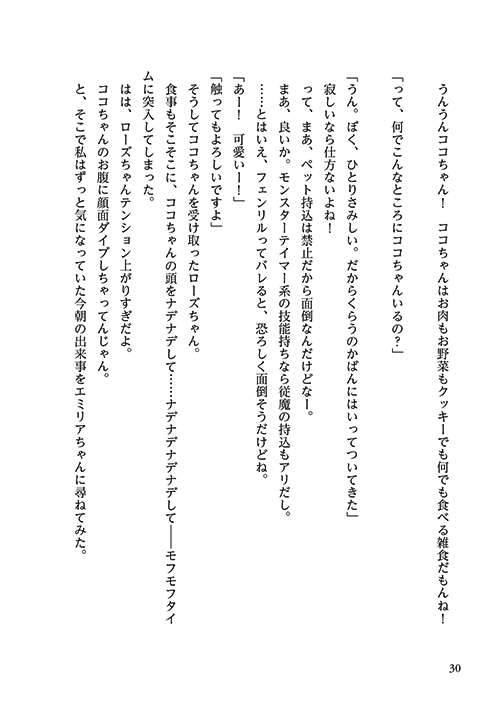 うんうんココちゃん！　ココちゃんはお肉もお野菜もクッキーでも何でも食べる雑食だもんね！
「って、何でこんなところにココちゃんいるの？」
「うん。ぼく、ひとりさみしい。だからくらうのかばんにはいってついてきた」
寂しいなら仕方ないよね！
って、まあ、ペット持込は禁止だから面倒なんだけどなー。
まあ、良いか。モンスターテイマー系の技能持ちなら従魔の持込もアリだし。
……とはいえ、フェンリルってバレると、恐ろしく面倒そうだけどね。
「あー！　可愛いー！」
「触ってもよろしいですよ」
そうしてココちゃんを受け取ったローズちゃん。
食事もそこそこに、ココちゃんの頭をナデナデして……ナデナデナデナデして――モフモフタイ
ムに突入してしまった。
はは、ローズちゃんテンション上がりすぎだよ。
ココちゃんのお腹に顔面ダイブしちゃってんじゃん。
と、そこで私はずっと気になっていた今朝の出来事をエミリアちゃんに尋ねてみた。
30